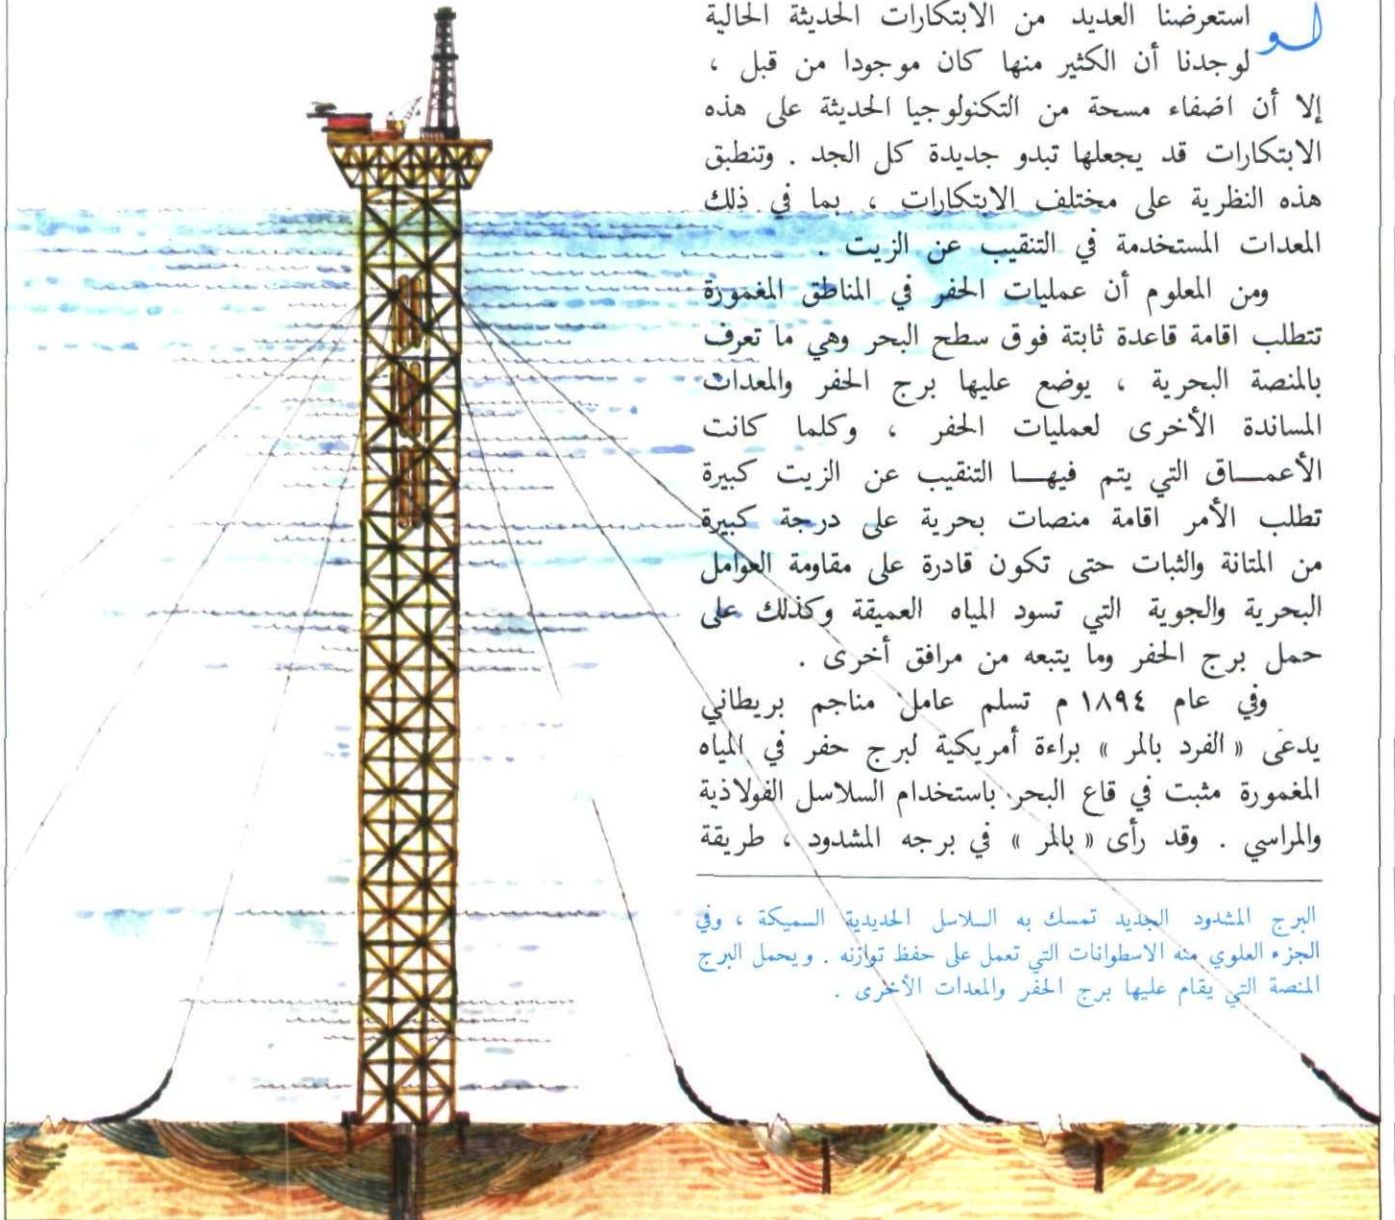 لو استعرضنا العديد من الابتكارات الحديثة الحالية
لوجدنا أن الكثير منها كان موجودا من قبل ،
إلا أن اضفاء مسحة من التكنولوجيا الحديثة على هذه
الابتكارات قد يجعلها تبدو جديدة كل الجد . وتنطبق
هذه النظرية على مختلف الابتكارات ، بما في ذلك
المعدات المستخدمة في التنقيب عن الزيت .
ومن المعلوم أن عمليات الحفر في المناطق المغمورة
تتطلب اقامة قاعدة ثابتة فوق سطح البحر وهي ما تعرف
بالمنصة البحرية ، يوضع عليها برج الحفر والمعدات
المساندة الأخرى لعمليات الحفر ، وكلما كانت
الأعمــاق التي يتم فيهــا التنقيب عن الزيت كبيرة
تطلب الأمر اقامة منصات بحرية على درجة كبيرة
من المتانة والثبات حتى تكون قادرة على مقاومة العوامل
البحرية والجوية التي تسود المياه العميقة وكذلك على
حمل برج الحفر وما يتبعه من مرافق أخرى .
وفي عام ١٨٩٤ م تسلم عامل مناجم بريطاني
يدعى « الفرد بالمر » براءة أمريكية لبرج حفر في المياه
المغمورة مثبت في قاع البحر باستخدام السلاسل الفولاذية
والمراسي . وقد رأى « بالمر » في برجه المشدود ، طريقة
البرج المشدود الجديد تمسك به السلاسل الحديدية السميكة ، وفي
الجزء العلوي منه الاسطوانات التي تعمل على حفظ توازنه . ويحمل البرج
المنصة التي يقام عليها برج الحفر والمعدات الأخرى .